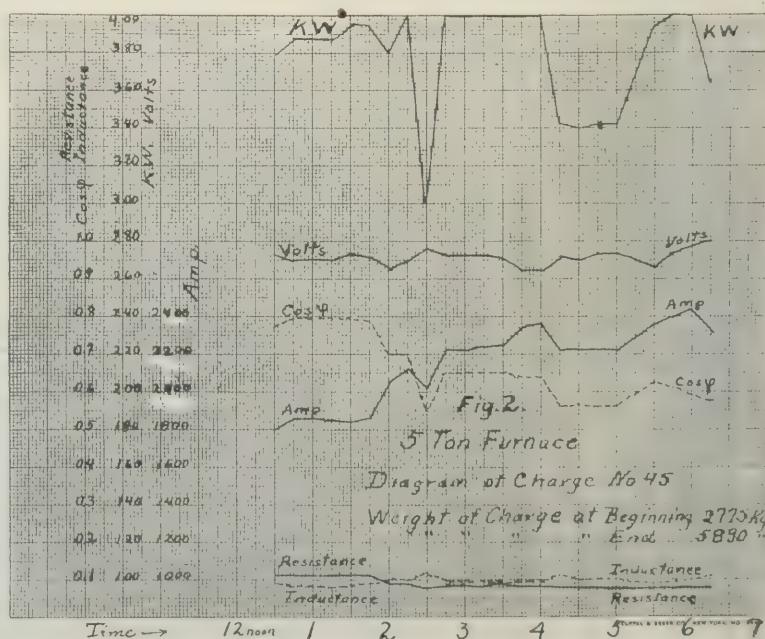 KW
KW
Resistance
Inductance
Cos φ
KW. Volts
Amp.
4.00
3.80
3.60
3.40
3.20
3.00
1.0 2.80
0.9 2.60
0.8 2.40 2400
0.7 2.20 2200
0.6 2.00 2000
0.5 1.80 1800
0.4 1.60 1600
0.3 1.40 1400
0.2 1.20 1200
0.1 1.00 1000
Volts
Volts
Cos φ
Amp
Amp
Cosφ
Fig. 2.
5 Ton Furnace
Diagram of Charge No 45
Weight of Charge at Beginning 2775 Kg
" " " " End 5890 "
Resistance
Inductance
Inductance
Resistance
Time → 12 noon 1 2 3 4 5 6 7